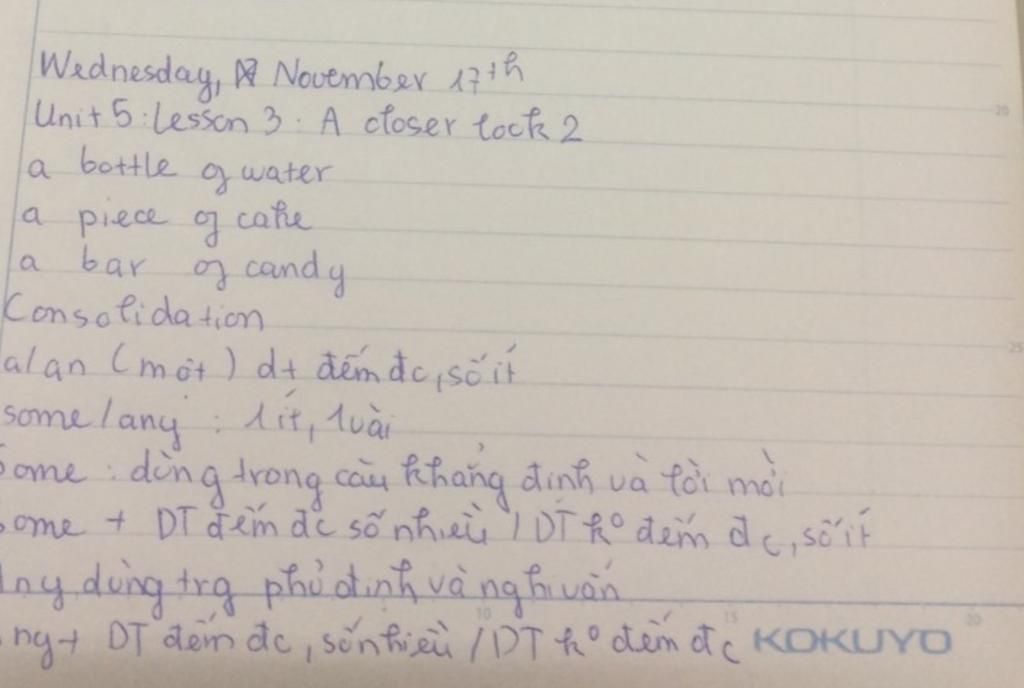 Wednesday, November 17th
Unit 5: Lesson 3: A closer look 2
a bottle of water
a piece of cake
a bar of candy
Consolidation
a/an (một) dt đếm đc, số ít
some/any: 1 ít, 1 vài
Some: dùng trong câu khẳng định và lời mời
some + DT đếm đc số nhiều / DT kº đếm đc, số ít
Any dùng trg phủ định và nghi vấn
any + DT đếm đc, số nhiều / DT kº đếm đc
KOKUYO
20
25
10
15
20